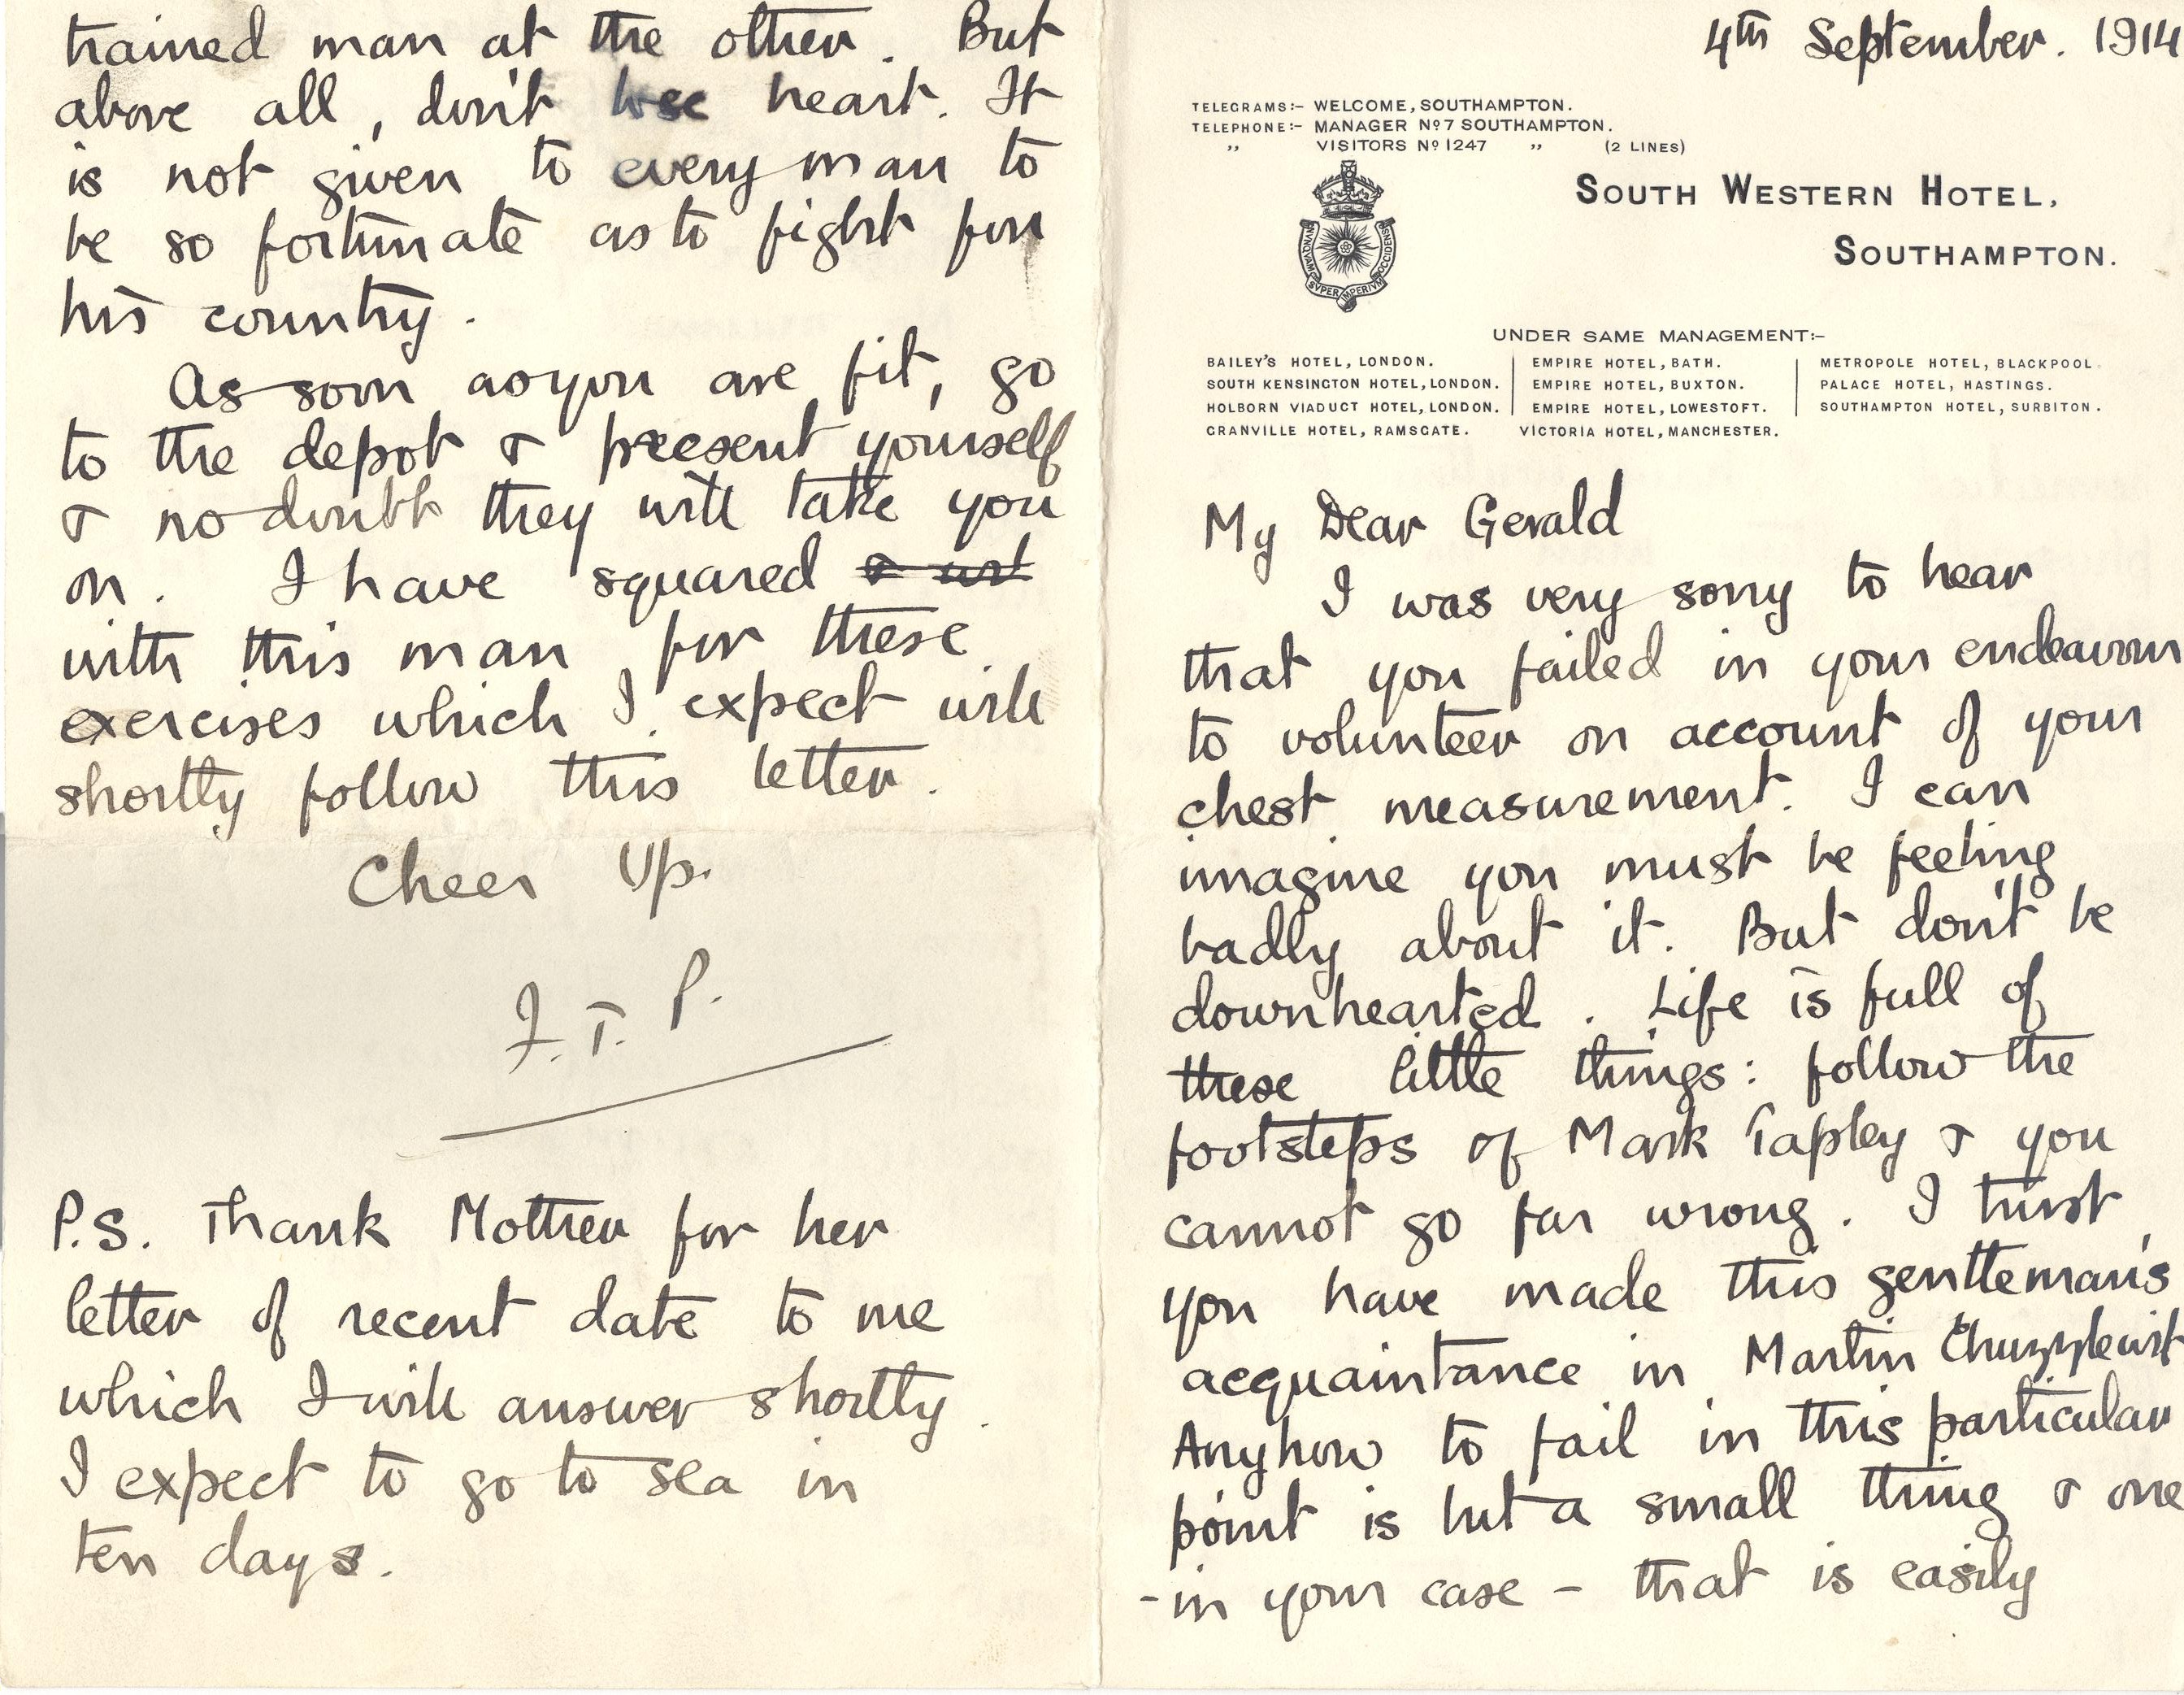 4th September. 1914
TELEGRAMS:- WELCOME, SOUTHAMPTON.
TELEPHONE:- MANAGER No 7 SOUTHAMPTON.
" VISITORS No 1247 " (2 LINES)
SOUTH WESTERN HOTEL,
SOUTHAMPTON.
NVNQVAM SVPER IMPERIVM OCCIDENS
UNDER SAME MANAGEMENT:-
BAILEY'S HOTEL, LONDON. EMPIRE HOTEL, BATH. METROPOLE HOTEL, BLACKPOOL.
SOUTH KENSINGTON HOTEL, LONDON. EMPIRE HOTEL, BUXTON. PALACE HOTEL, HASTINGS.
HOLBORN VIADUCT HOTEL, LONDON. EMPIRE HOTEL, LOWESTOFT. SOUTHAMPTON HOTEL, SURBITON.
GRANVILLE HOTEL, RAMSGATE. VICTORIA HOTEL, MANCHESTER.
My Dear Gerald
I was very sorry to hear
that you failed in your endeavour
to volunteer on account of your
chest measurement. I can
imagine you must be feeling
badly about it. But don't be
downhearted. Life is full of
these little things: follow the
footsteps of Mark Tapley & you
cannot go far wrong. I trust
you have made this gentleman's
acquaintance in Martin Chuzzlewit
Anyhow to fail in this particular
point is but a small thing & one
- in your case - that is easily
trained man at the other. But
above all, don't lose heart. It
is not given to every man to
be so fortunate as to fight for
his country.
As soon as you are fit, go
to the depot & present yourself
& no doubt they will take you
on. I have squared
with this man for these
exercises which I expect will
shortly follow this letter.
Cheer Up.
J. T. P.
P.S. Thank Mother for her
letter of recent date to me
which I will answer shortly.
I expect to go to sea in
ten days.